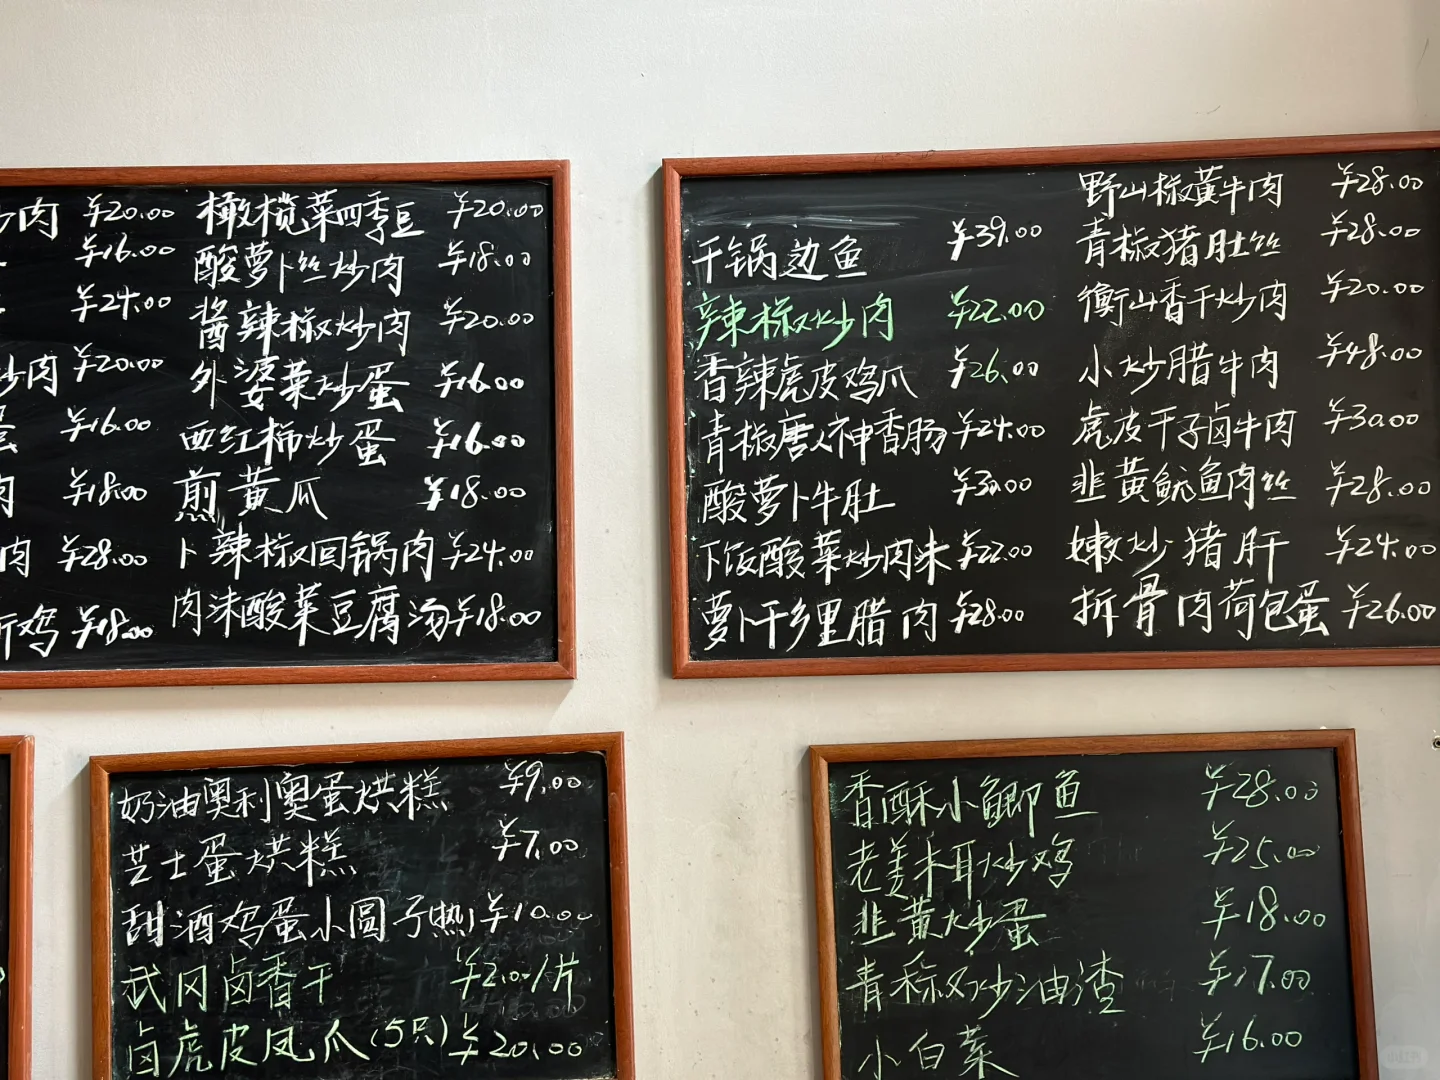 肉 ¥20.00 橄榄菜四季豆 ¥20.00
¥16.00 酸萝卜丝炒肉 ¥18.00
¥24.00 酱辣椒炒肉 ¥20.00
炒肉 ¥20.00 外婆菜炒蛋 ¥16.00
¥16.00 西红柿炒蛋 ¥16.00
肉 ¥18.00 煎黄瓜 ¥18.00
肉 ¥28.00 卜辣椒回锅肉 ¥24.00
鸡 ¥18.00 肉沫酸菜豆腐汤 ¥18.00
干锅边鱼 ¥39.00
辣椒炒肉 ¥22.00
香辣虎皮鸡爪 ¥26.00
青椒唐人神香肠 ¥24.00
酸萝卜牛肚 ¥30.00
下饭酸菜炒肉末 ¥22.00
萝卜干乡里腊肉 ¥28.00
野山椒黄牛肉 ¥28.00
青椒猪肚丝 ¥28.00
衡山香干炒肉 ¥20.00
小炒腊牛肉 ¥48.00
虎皮干子卤牛肉 ¥30.00
韭黄鱿鱼肉丝 ¥28.00
嫩炒猪肝 ¥24.00
拆骨肉荷包蛋 ¥26.00
奶油奥利奥蛋烘糕 ¥9.00
芝士蛋烘糕 ¥7.00
甜酒鸡蛋小圆子(热) ¥10.00
武冈卤香干 ¥2.00/片
卤虎皮凤爪(5只) ¥20.00
香酥小鲫鱼 ¥28.00
老姜木耳炒鸡 ¥25.00
韭黄炒蛋 ¥18.00
青椒炒油渣 ¥17.00
小白菜 ¥16.00